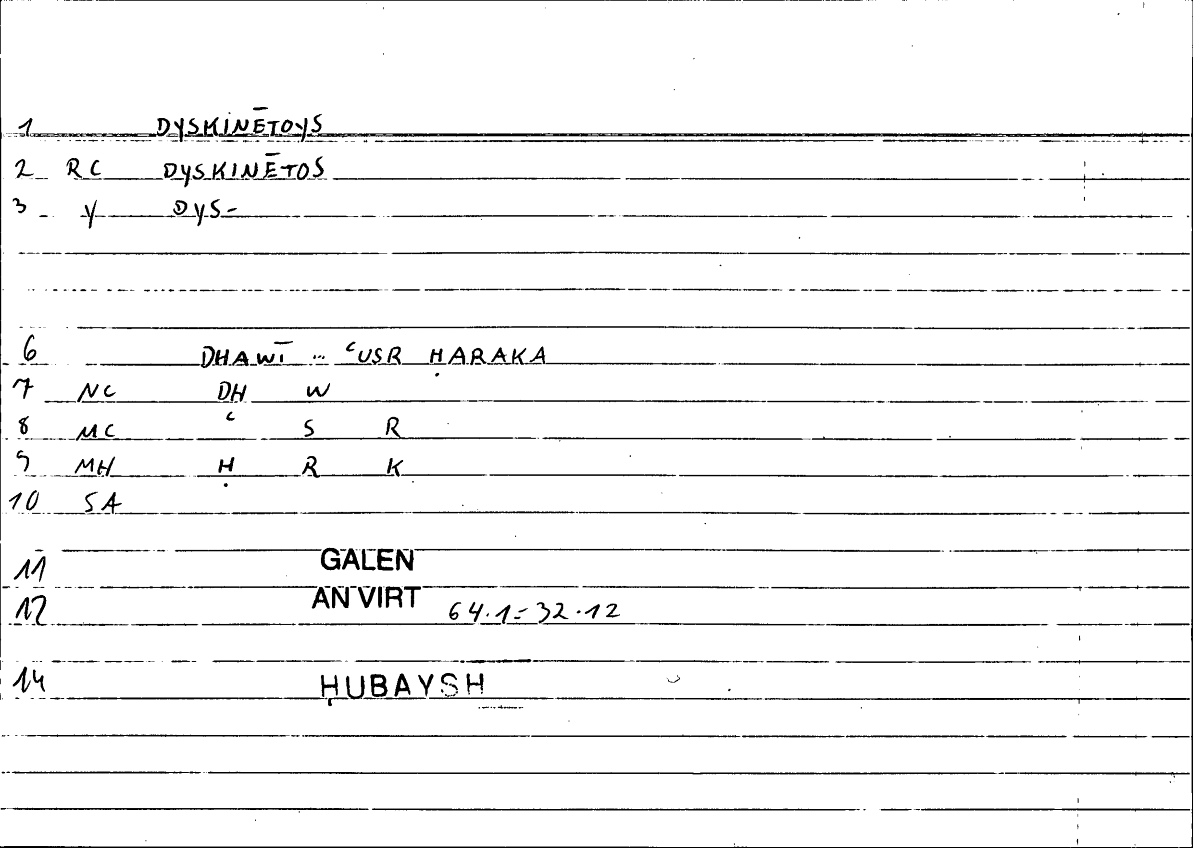 1 DYSKINĒTOYS
2 RC DYSKINĒTOS
3 Y DYS-
6 DHAWĪ ... ʿUSR ḤARAKA
7 NC DH W
8 MC ʿ S R
9 MH Ḥ R K
10 SA
11 GALEN
12 AN VIRT 64.1 = 32.12
14 ḤUBAYSH